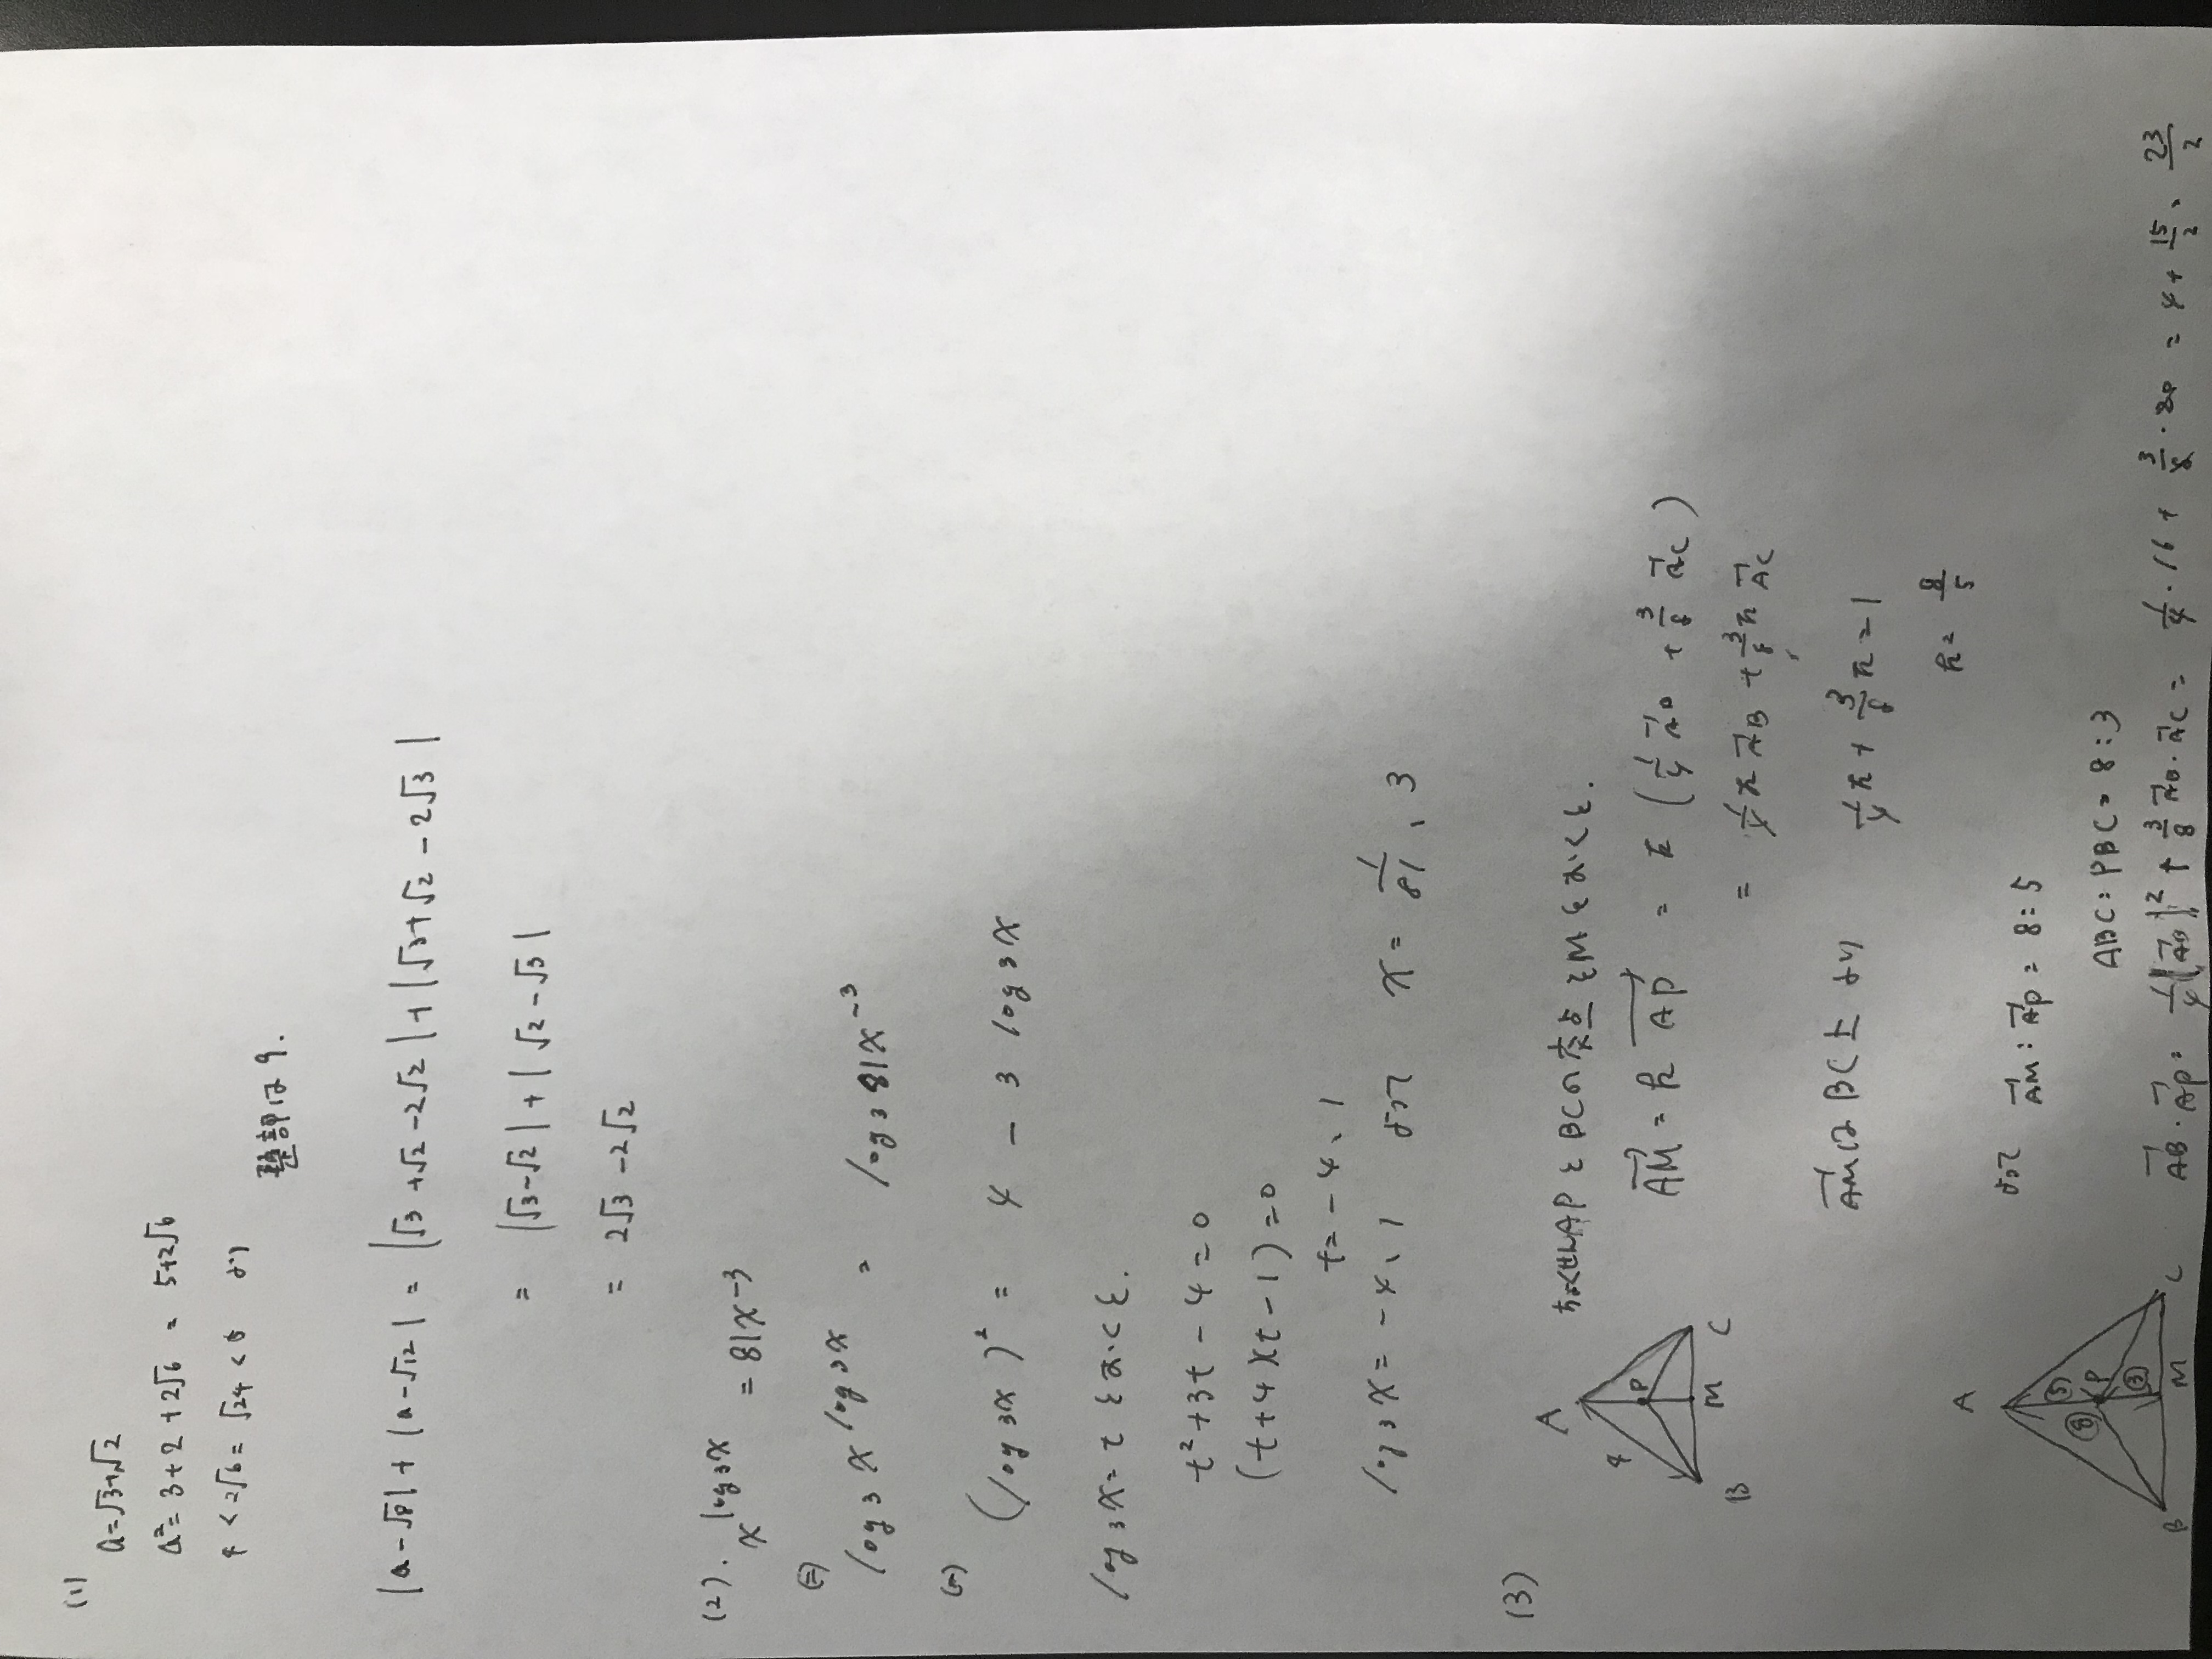 (1)
a=√3+√2
a²= 3+2+2√6 = 5+2√6
4<2√6=√24<5 より
整部は9.
|a-√8|+|a-√12| = |√3+√2-2√2|+|√3+√2-2√3|
= |√3-√2|+|√2-√3|
= 2√3-2√2
(2). x^log₃x = 81x⁻³
(=) log₃x^log₃x = log₃81x⁻³
(=) (log₃x)² = 4 - 3log₃x
log₃x=tとおくと.
t²+3t-4=0
(t+4)(t-1)=0
t=-4、1
log₃x=-4、1 よって x= 1/81, 3
(3)
A
4
P
B M C
直線APとBCの交点をMとおくと.
AM→ = k AP→ = k(1/4 AB→ + 3/8 AC→)
= 1/4 k AB→ + 3/8 k AC→
AM→はBC上より 1/4 k + 3/8 k = 1
k= 8/5
よって AM→:AP→=8:5
ABC:PBC=8:3
A
⑧ ⑤
P
③
B M C
AB→・AP→= 1/4|AB→|²+ 3/8 AB→・AC→= 1/4・16+ 3/8・20 = 4+ 15/2、 23/2